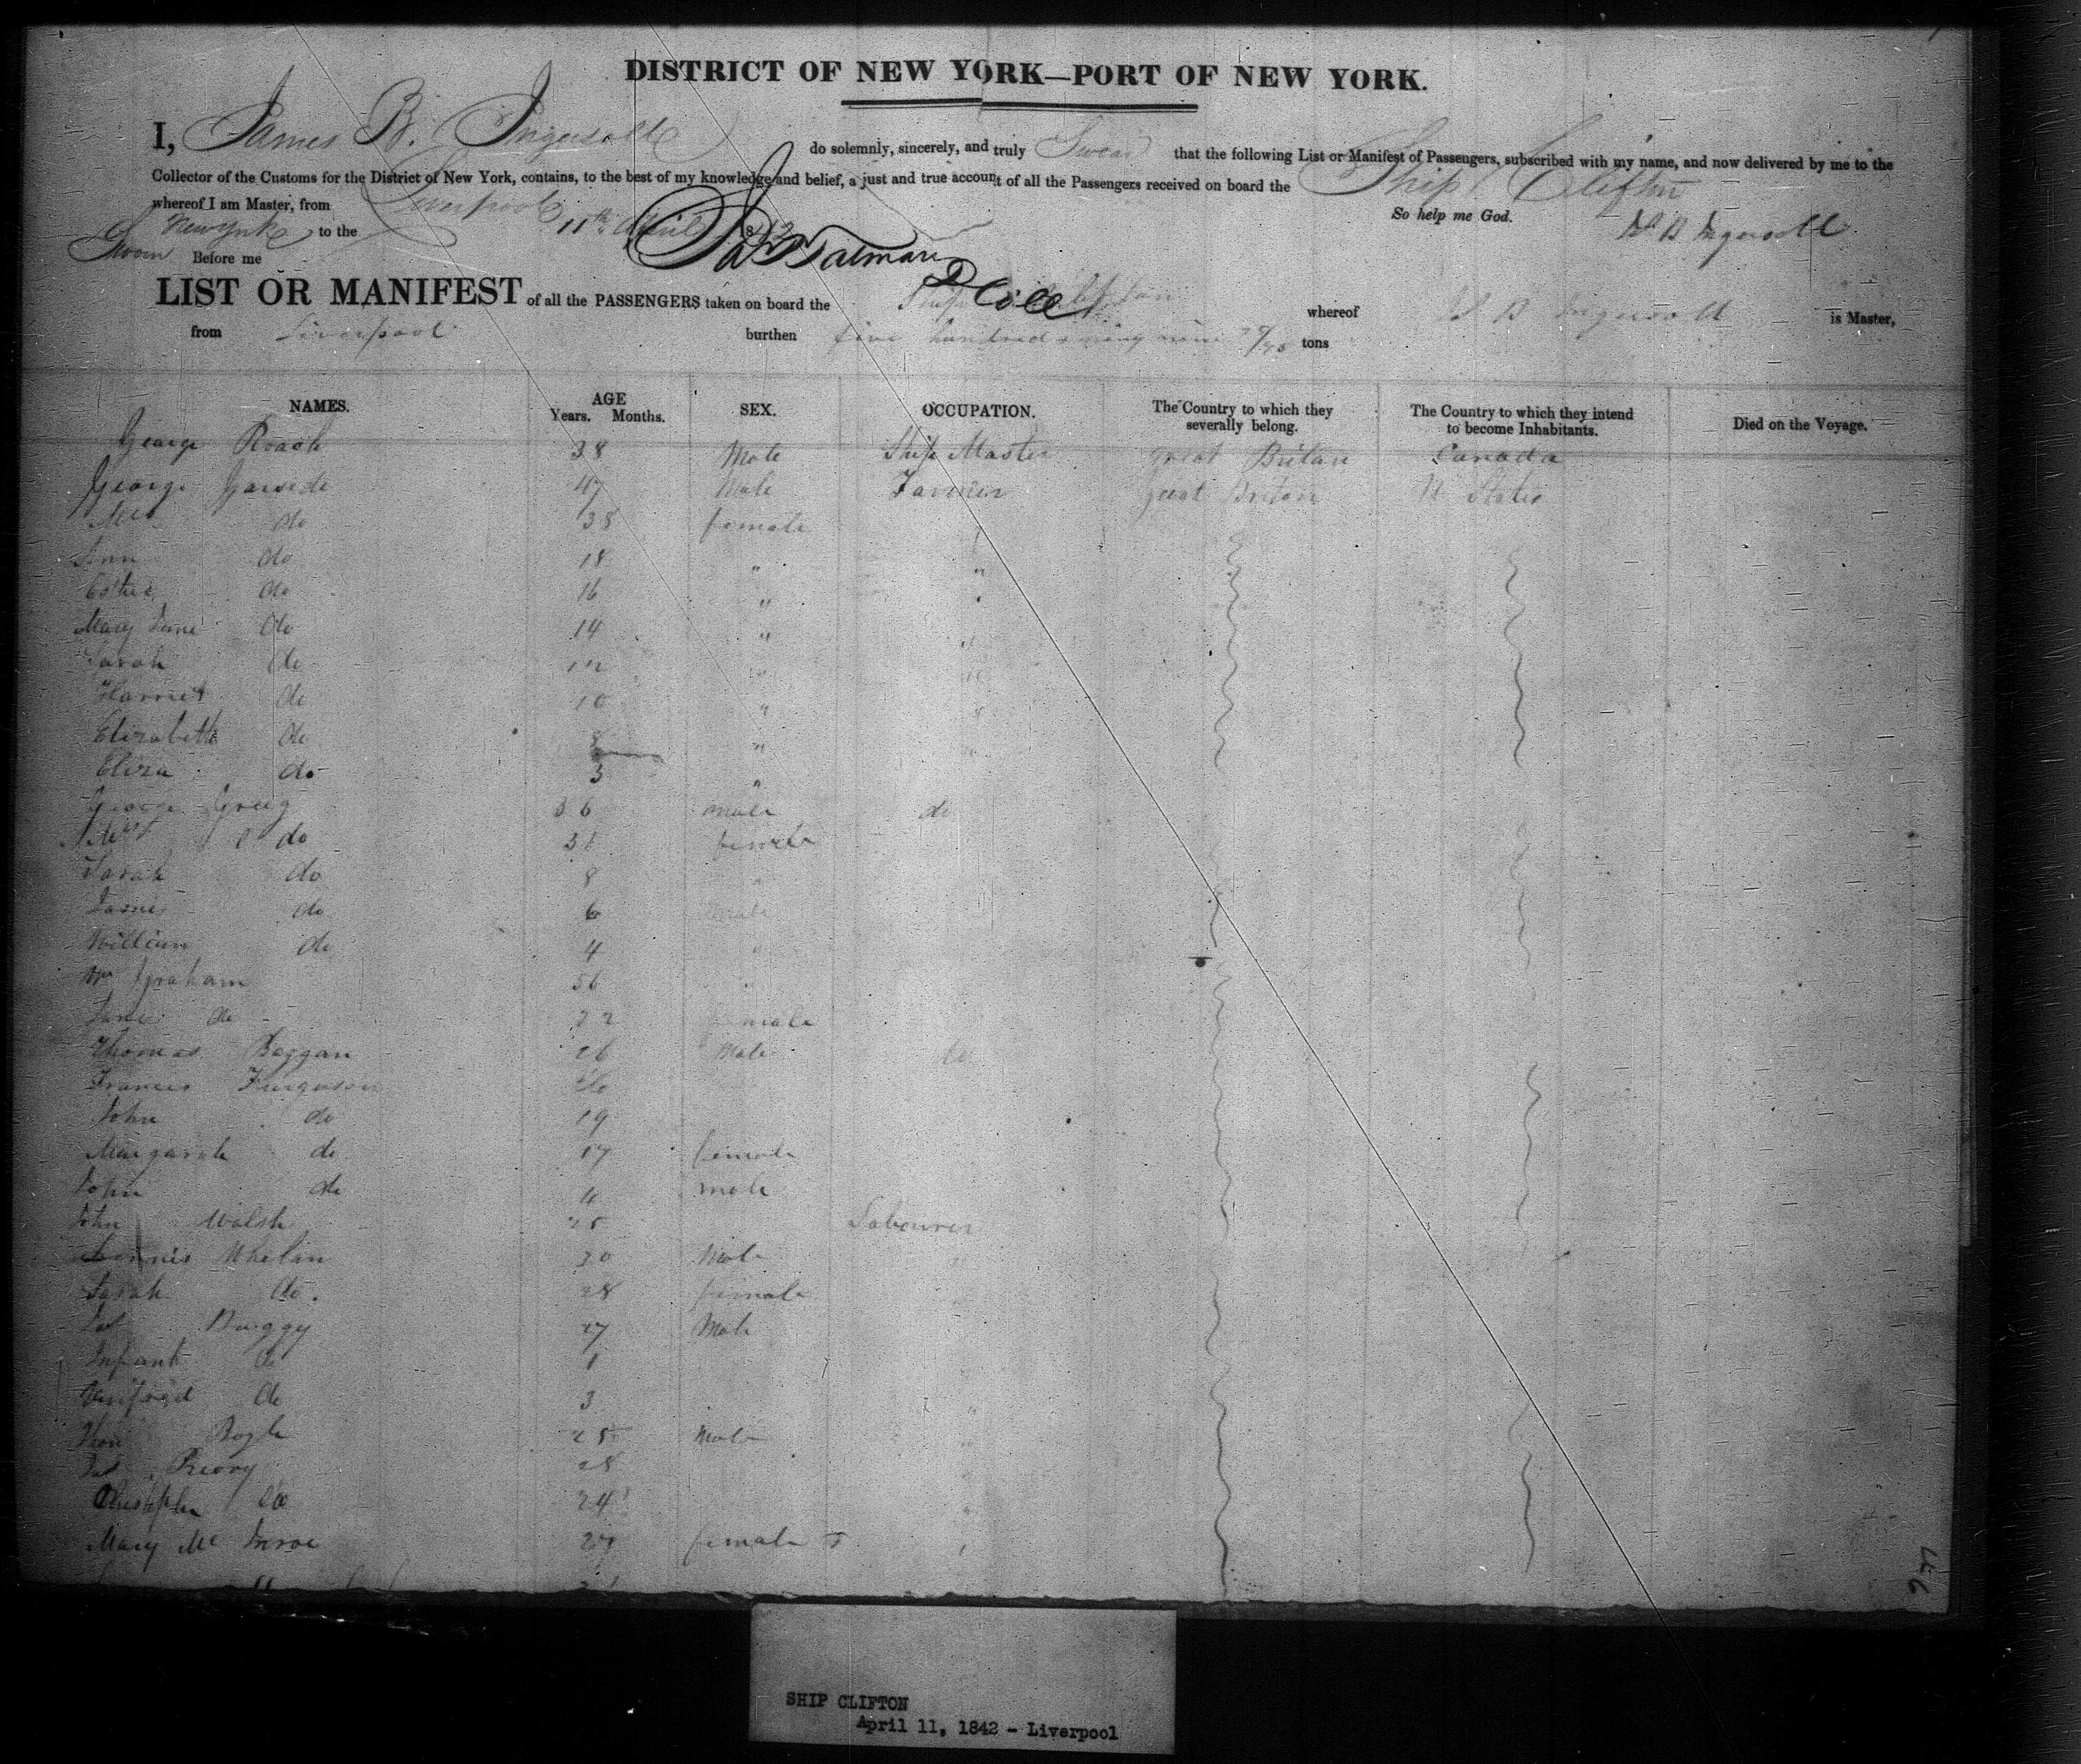 DISTRICT OF NEW YORK—PORT OF NEW YORK.
I, James B. Ingersoll do solemnly, sincerely, and truly Swear that the following List or Manifest of Passengers, subscribed with my name, and now delivered by me to the
Collector of the Customs for the District of New York, contains, to the best of my knowledge and belief, a just and true account of all the Passengers received on board the Ship Clifton
whereof I am Master, from Liverpool So help me God.
New York to the 11th April 1842 J B Ingersoll
Sworn Before me
LIST OR MANIFEST of all the PASSENGERS taken on board the Ship Clifton whereof J B Ingersoll is Master,
from Liverpool burthen five hundred tons
NAMES. AGE Years. Months. SEX. OCCUPATION. The Country to which they severally belong. The Country to which they intend to become Inhabitants. Died on the Voyage.
George Roach 38 Male Ship Master great Britan Canada
George Garside 47 Male Farmer great Britan U States
Mrs do 38 female
Ann do 18 " "
Ester do 16 " "
Mary Jane do 14 " "
Sarah do 12 " "
Harriet do 10 " "
Elizabeth do 8 " "
Eliza do 3 "
George Greig 36 male do
Mrs do 31 female
Sarah do 8 "
James do 6 male
William do 4 "
Wm Graham 56 "
Jane do 22 female
Thomas Boggan 26 Male do
Frances Furguson 26
John do 19
Margarah do 17 female
John do 4 male
John Walsh 25 Labourer
Whelan 30 Male "
Sarah do. 28 female
Pat Buggy 27 Male
Infant do 1
do 3 "
Boyle 25 Male "
28
24 "
Mary Mc 27 female "
SHIP CLIFTON
April 11, 1842 - Liverpool